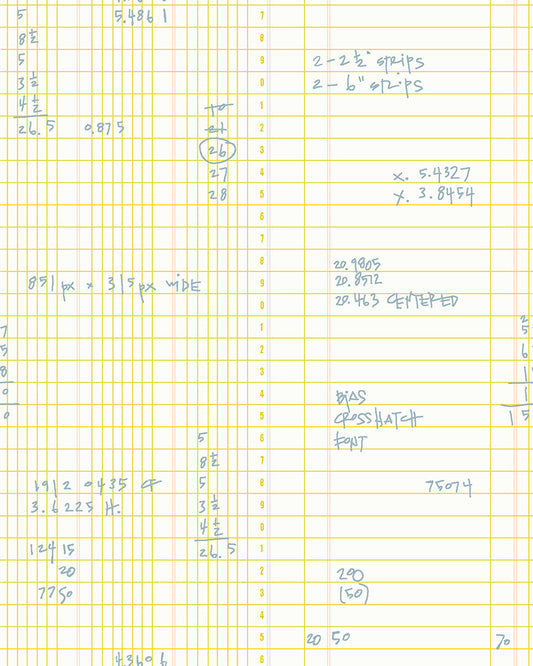 5
5.4861
7
8 1/2
8
5
9
2 - 2 1/2" strips
3 1/2
0
2 - 6" strips
4 1/2
1
26.5
0.875
21
2
26
3
27
4
x. 5.4327
28
5
y. 3.8454
6
7
8
20.9805
851px x 315px WIDE
9
20.8512
0
20.463 CENTERED
7
1
2
5
5
2
6
8
3
1
0
4
BIAS
1
0
5
CROSSHATCH
15
5
6
FONT
8 1/2
7
1912 0435 CF
5
8
75074
3.6225 H.
3 1/2
9
4 1/2
0
12415
26.5
1
20
2
290
7750
3
(50)
4
5
20 50
70
4.3606
6